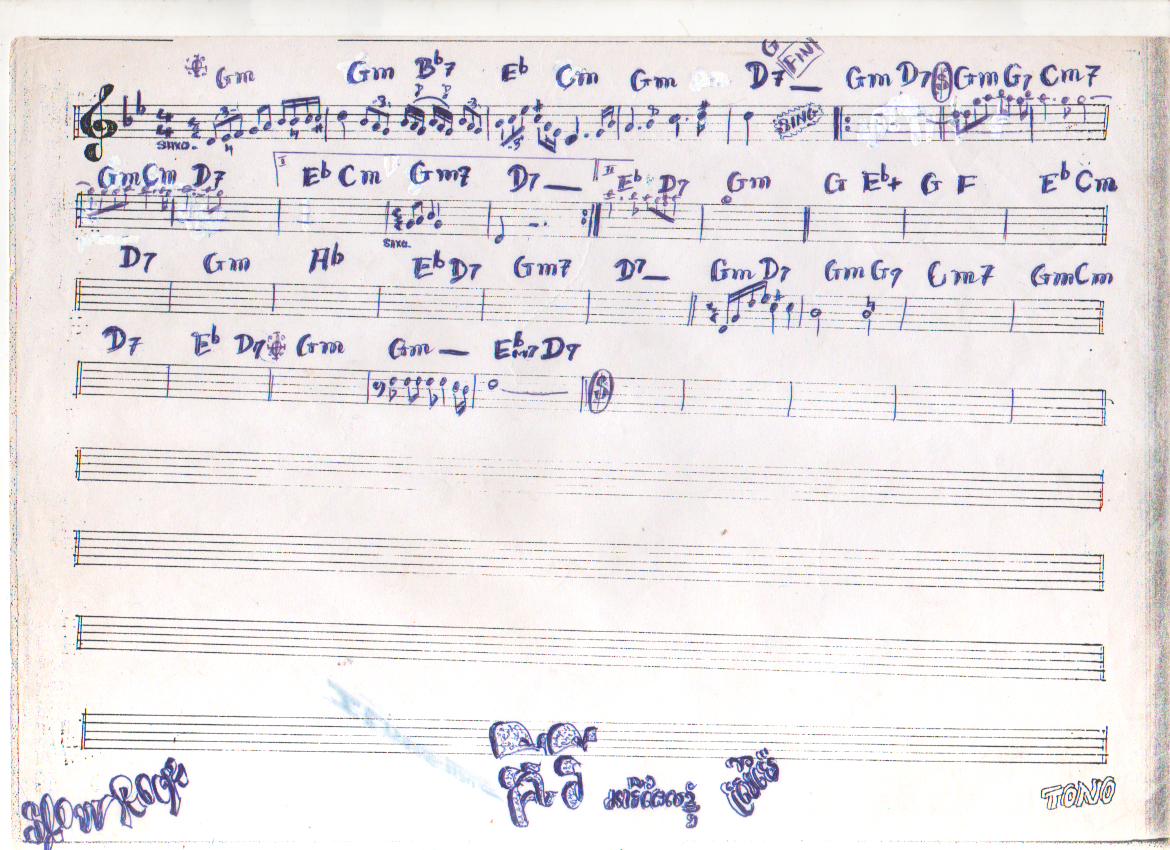 Gm Gm Bb7 Eb Cm Gm D7 G FINI Gm D7 Gm G7 Cm7
SAXO. SING
Gm Cm D7 I Eb Cm Gm7 D7 II Eb D7 Gm G Eb+ G F Eb Cm
SAXO.
D7 Gm Ab Eb D7 Gm7 D7 Gm D7 Gm G9 Cm7 Gm Cm
D7 Eb D7 Gm Gm Ebm7 D7
SLOW ROCK TONO